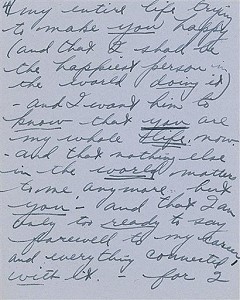 4/ my entire life trying
to make you happy
(and that I shall be
the happiest person in
the world doing it)
- and I want him to
know that you are
my whole life. now.
- and that nothing else
in the world matters
to me anymore but
you - and that I am
only too ready to say
farewell to my career
and everything connected
with it. - for I